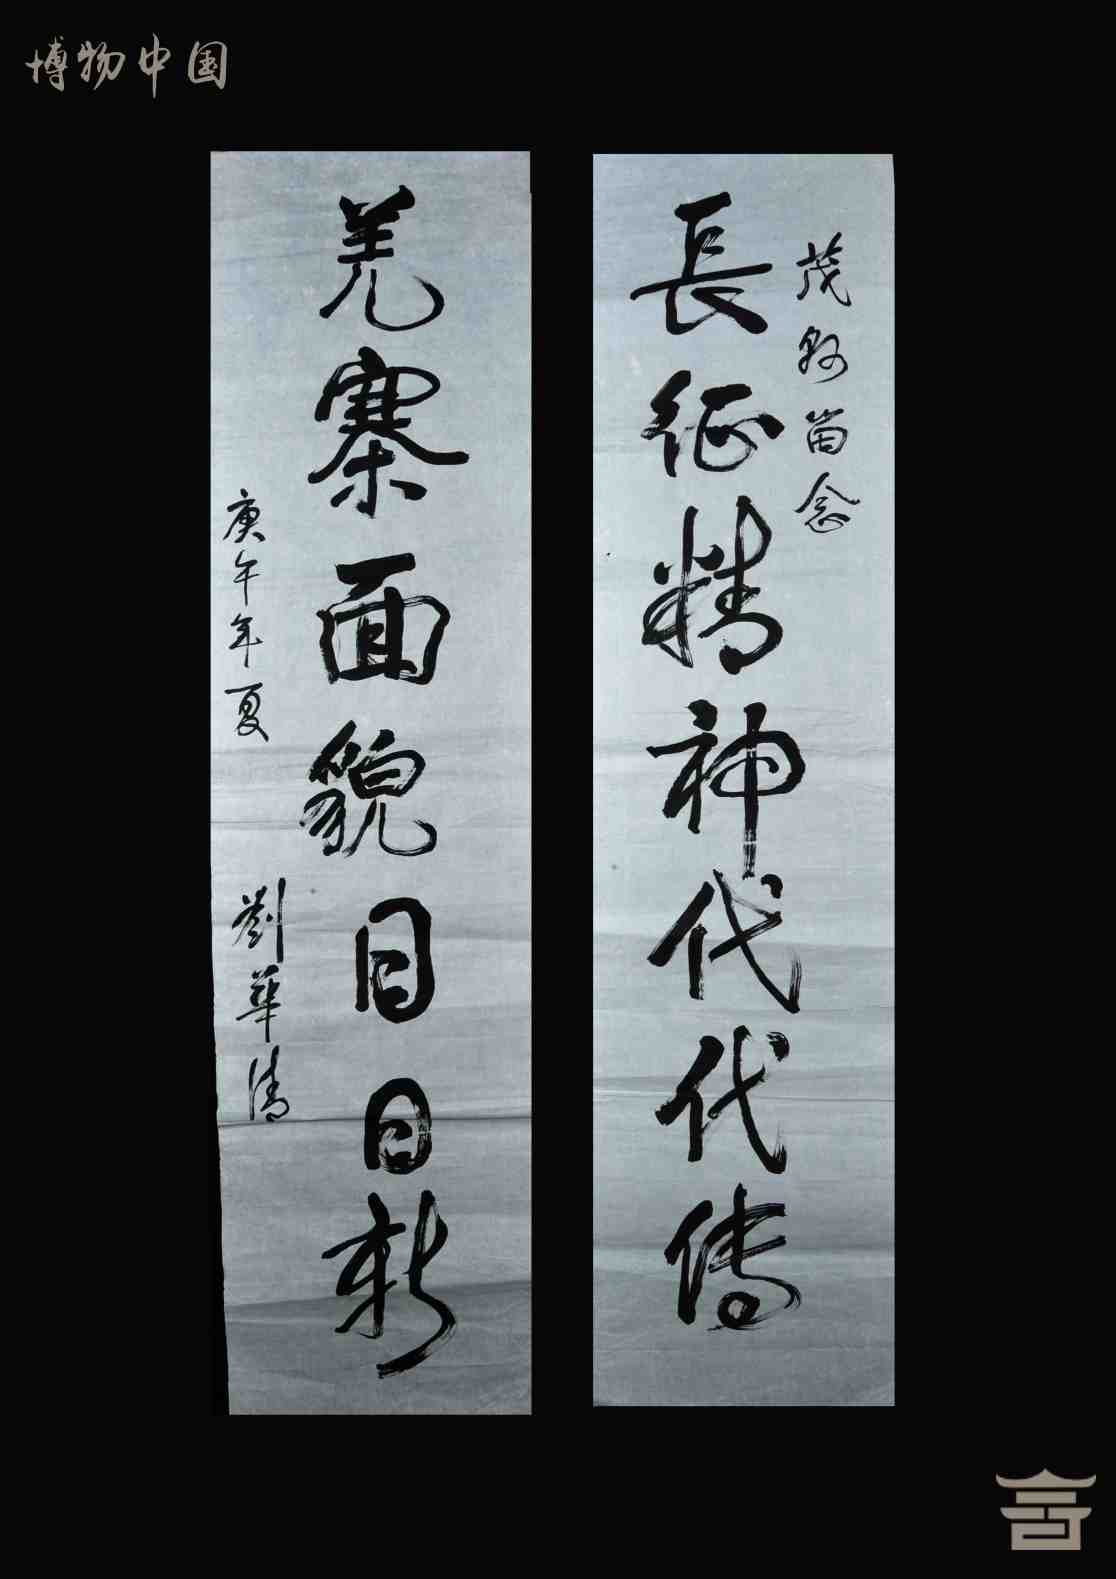 博物中国
茂县留念
長征精神代代傳
羌寨面貌日日新
庚午年夏
劉華清